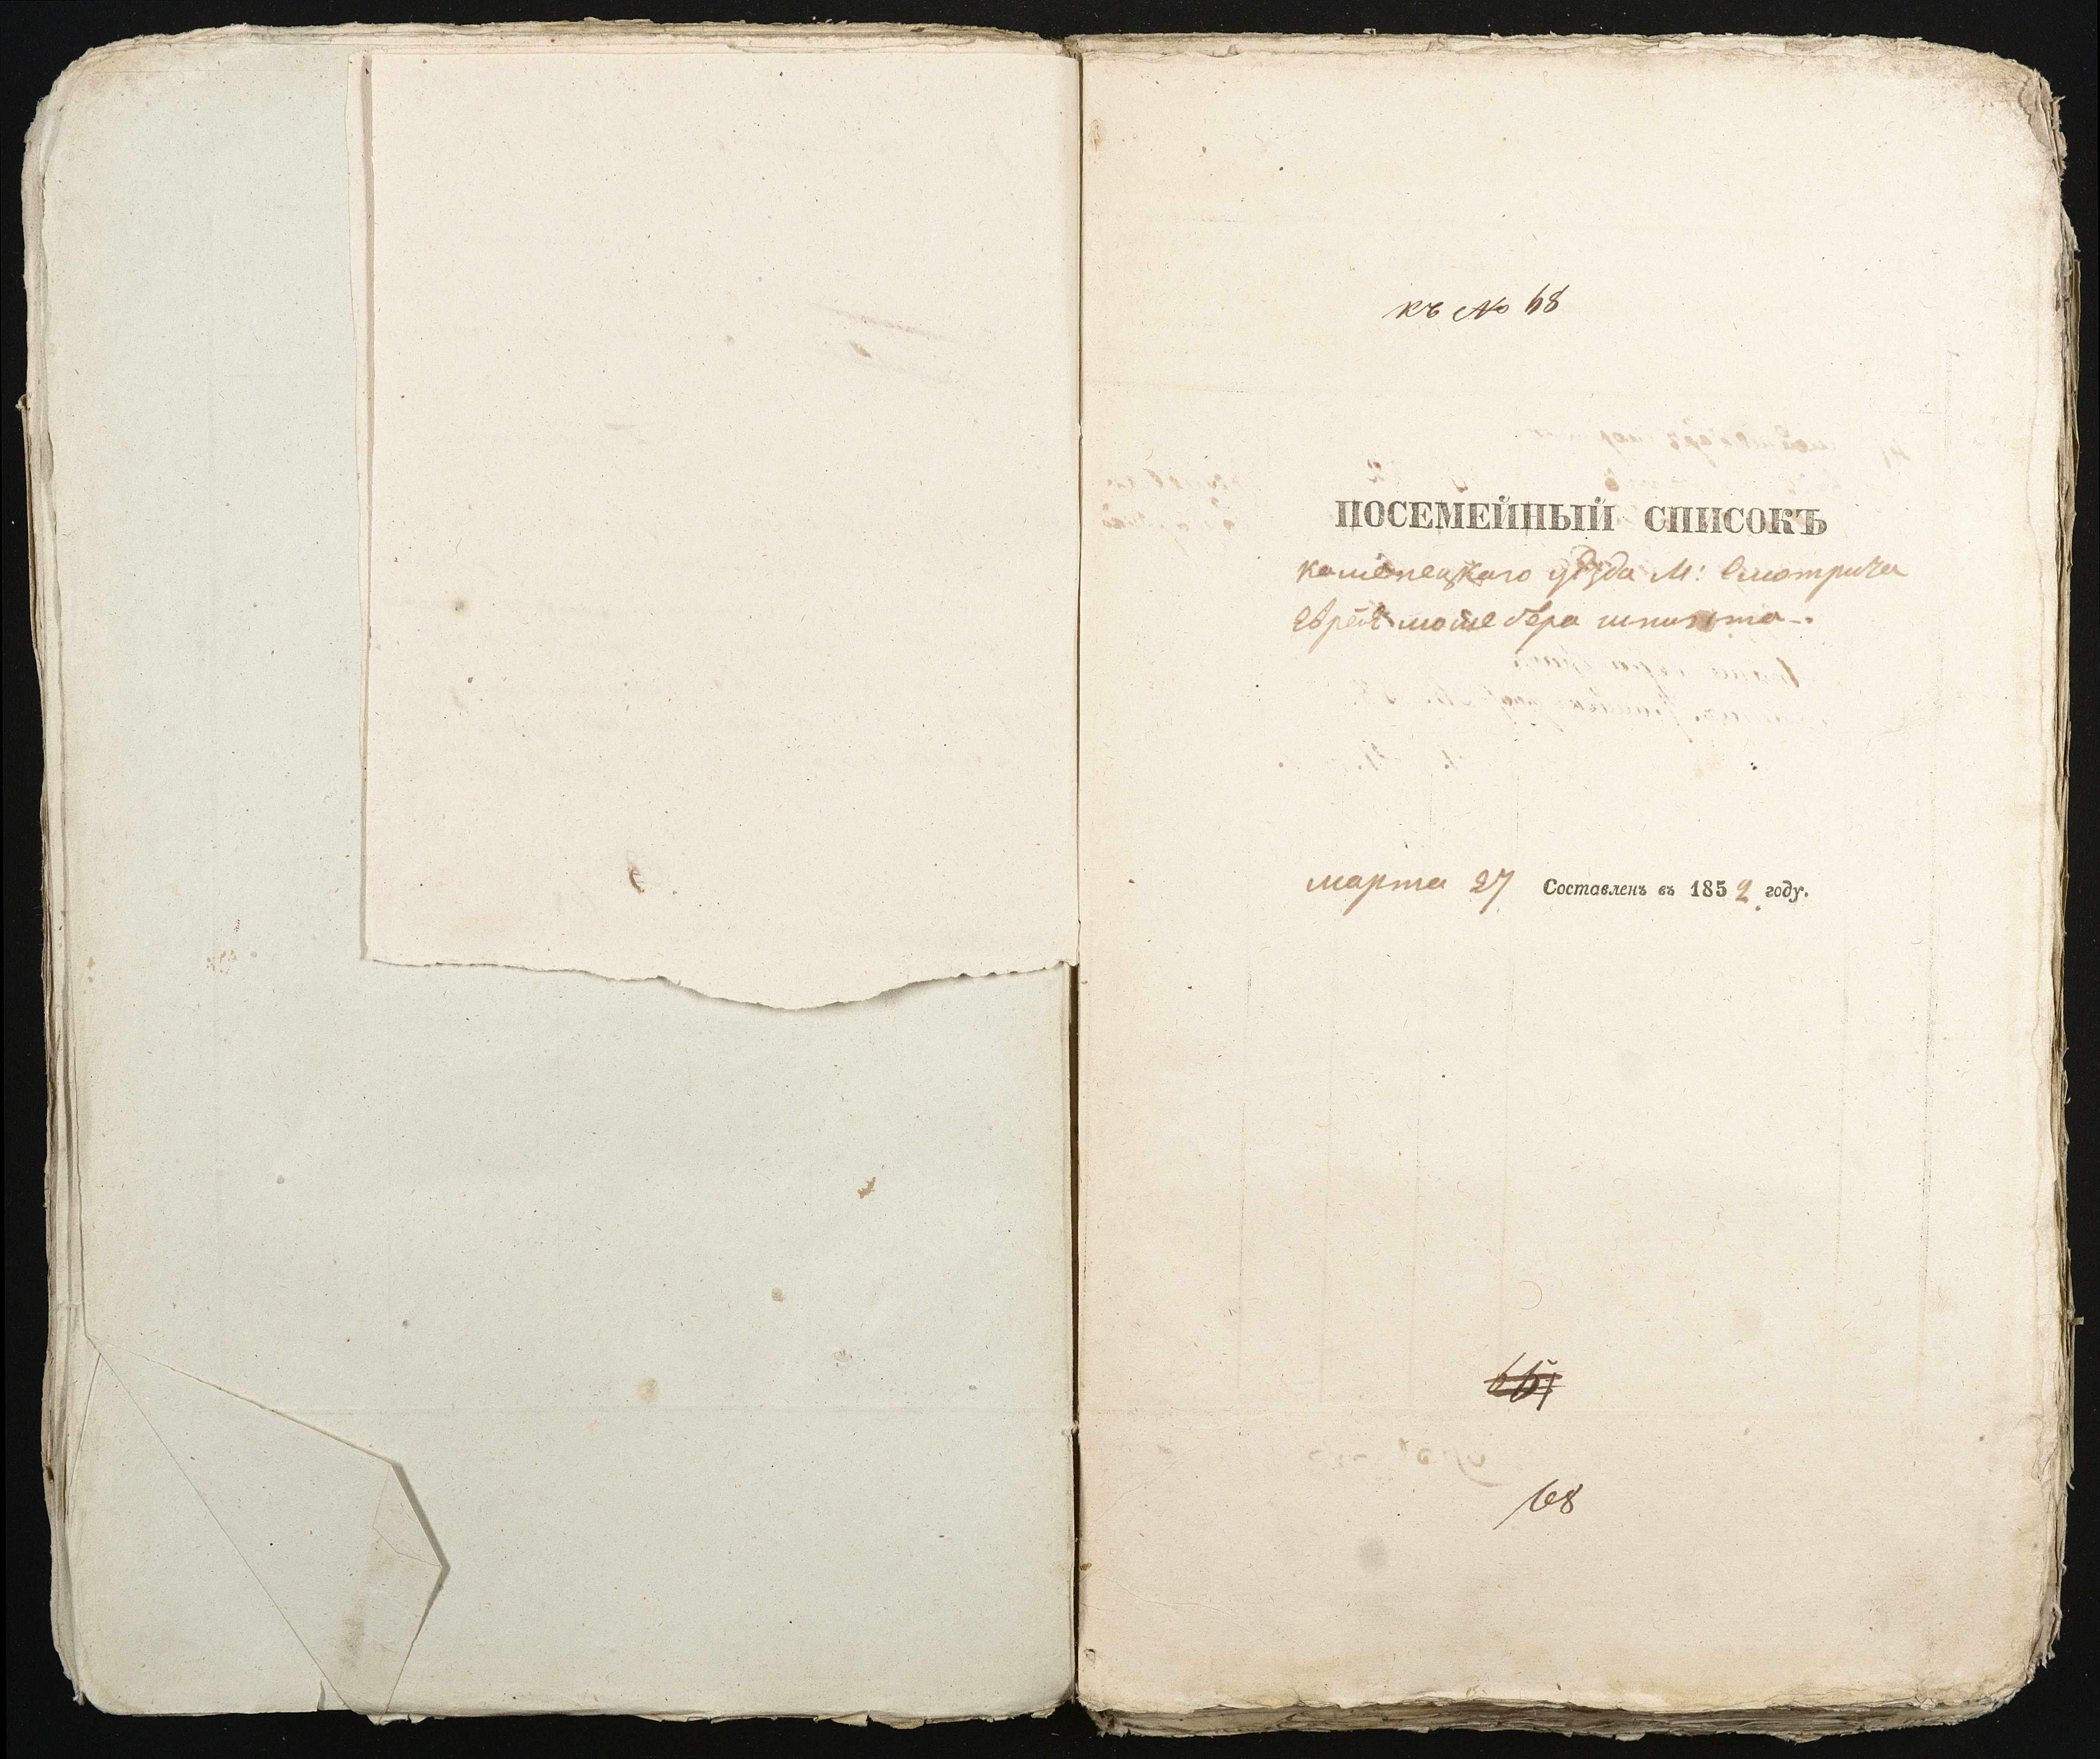 къ № 68
ПОСЕМЕЙНЫЙ СПИСОКЪ
каменецкаго уѣзда М: Смотрича
еврея мошебера
марта 27 Составленъ въ 1852 году.
68